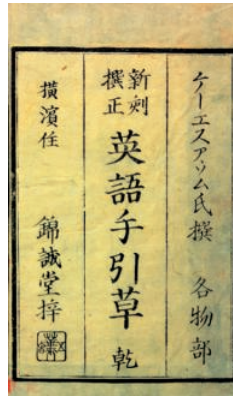 ケーエスアソム氏撰 各物部
新刻
撰正
英語手引草 乾
横濱住 錦誠堂梓